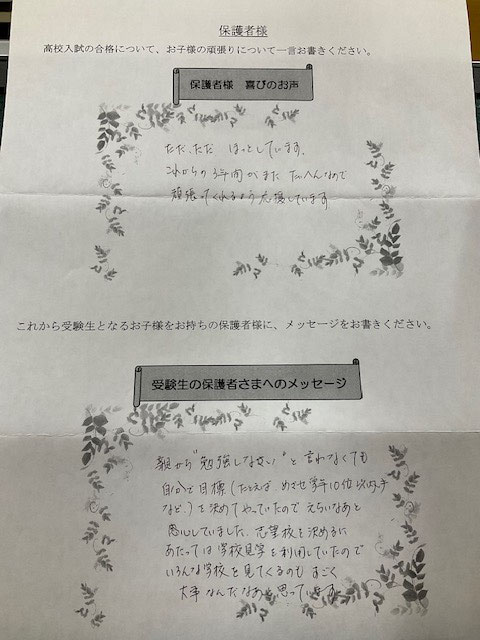 保護者様
高校入試の合格について、お子様の頑張りについて一言お書きください。
保護者様　喜びのお声
ただ、ただ　ほっとしています。
これからの3年間がまた たいへんなので
頑張ってくれるよう応援しています
これから受験生となるお子様をお持ちの保護者様に、メッセージをお書きください。
受験生の保護者さまへのメッセージ
親から"勉強しなさい"と言わなくても
自分で目標(たとえば めざせ学年10位以内
など。)を決めてやっていたので えらいなあと
感心していました。志望校を決めるに
あたっては学校見学を利用していたので
いろんな学校を見てくるのも すごく
大事なんだなあと思っています